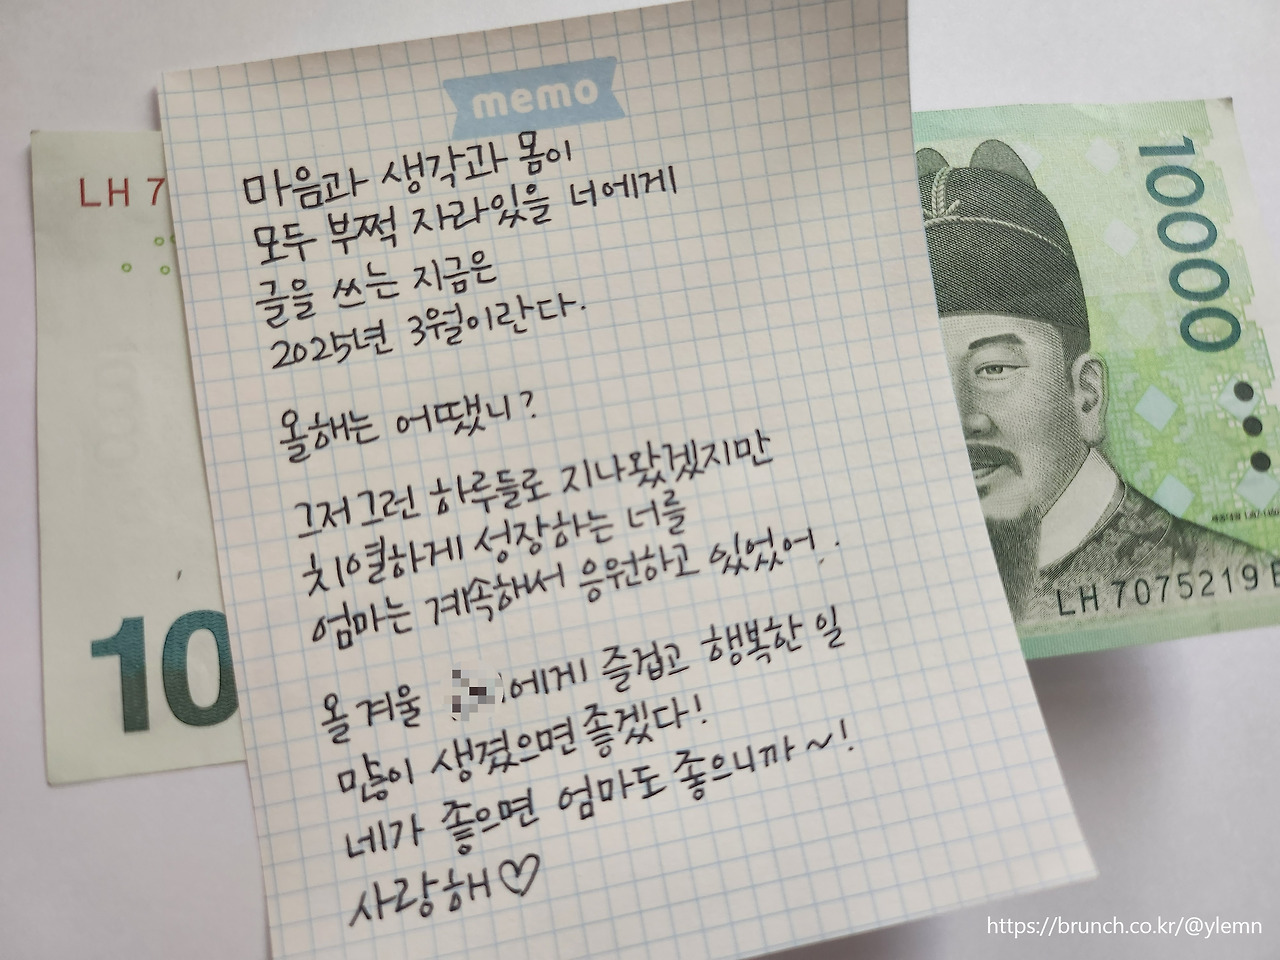 memo
마음과 생각과 몸이
모두 부쩍 자라있을 너에게
글을 쓰는 지금은
2025년 3월이란다.
올해는 어땠니?
그저그런 하루들로 지나왔겠지만
치열하게 성장하는 너를
엄마는 계속해서 응원하고 있었어.
올 겨울 에게 즐겁고 행복한 일
많이 생겼으면 좋겠다!
네가 좋으면 엄마도 좋으니까~!
사랑해♡
LH 7
10
10000
LH 7075219
https://brunch.co.kr/@ylemn